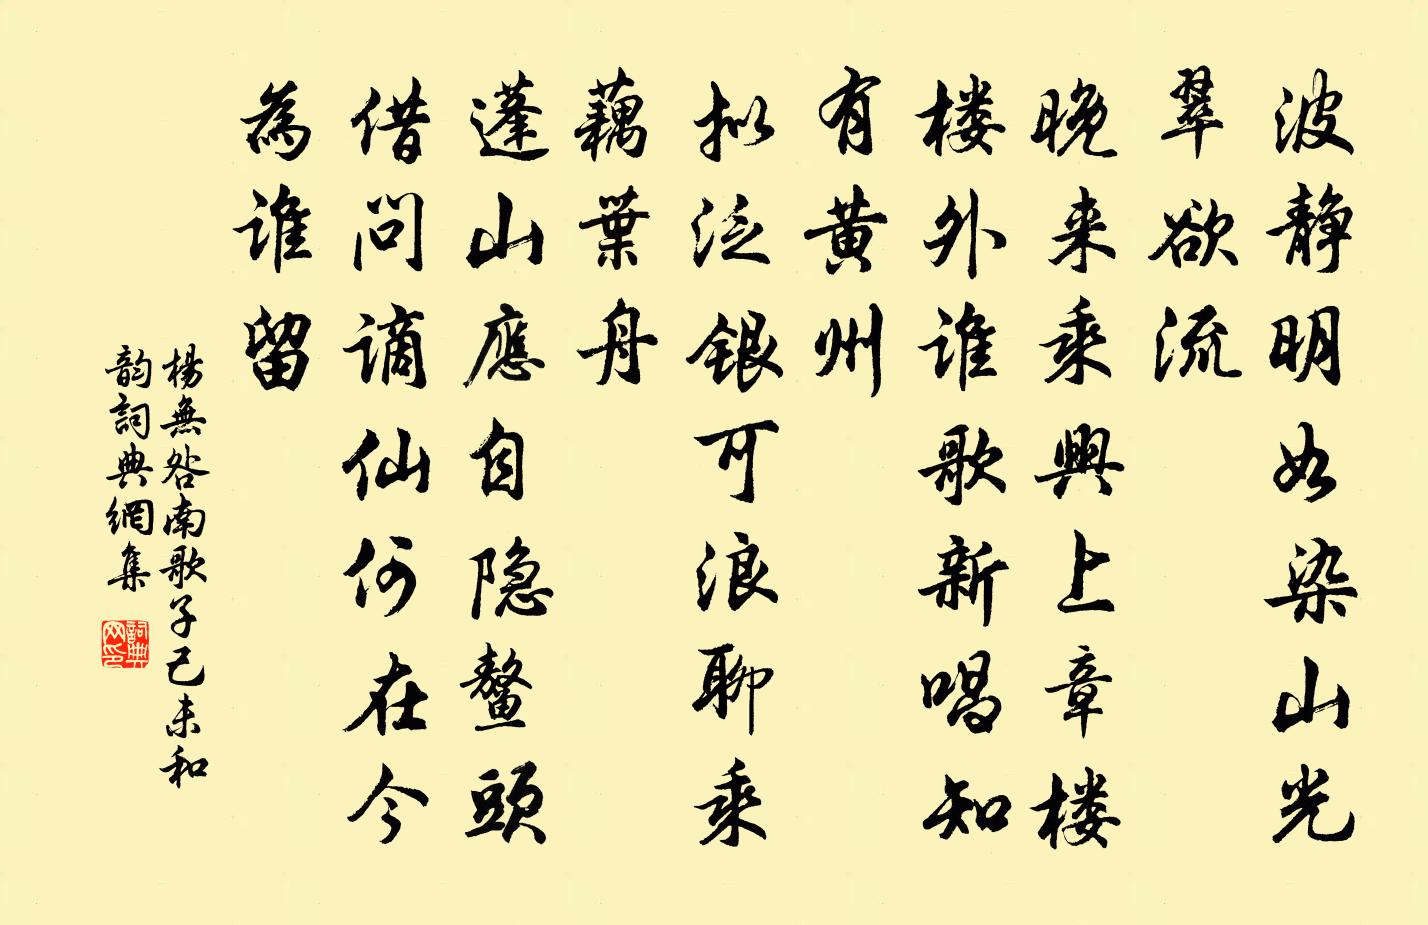 波静明如染山光
翠欲流
晚来乘興上章楼
楼外谁歌新唱知
有黄州
拟泛銀可浪聊乘
藕葉舟
蓬山應自隐鳌頭
借问谪仙何在今
為谁留
楊無咎南歌子己未和
韵詞典網集
詞典网印